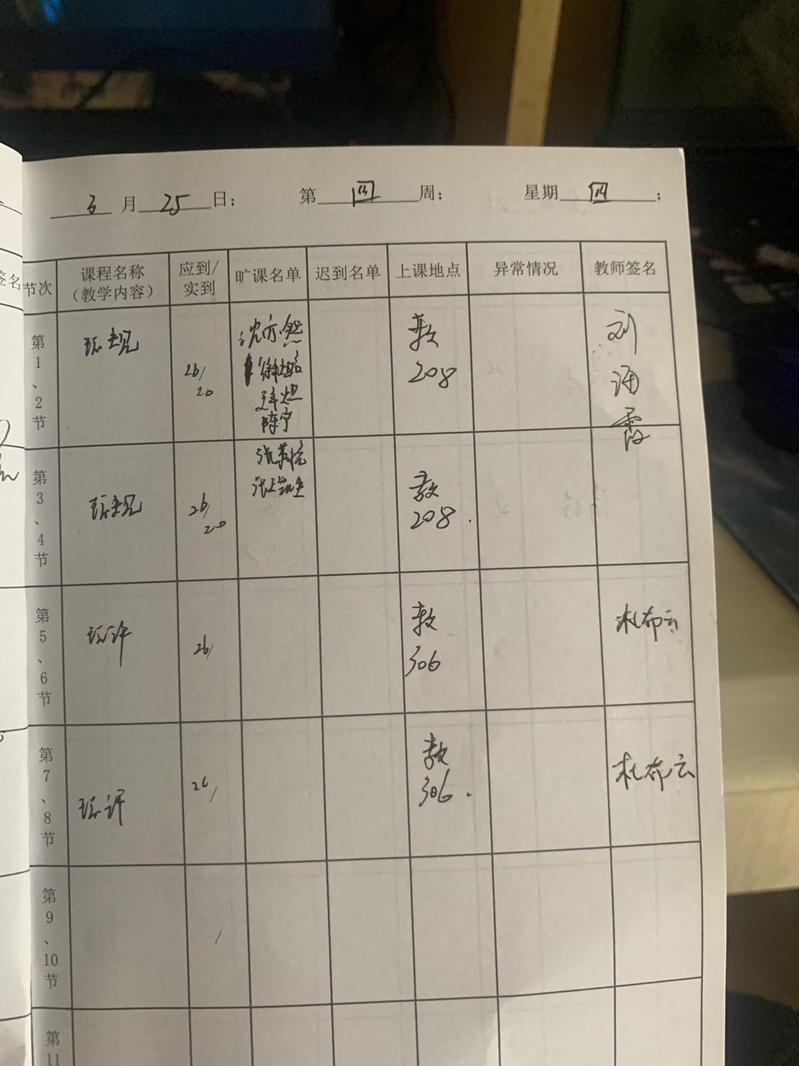 3月25日； 第四周； 星期四；
签名
节次 课程名称（教学内容） 应到/实到 旷课名单 迟到名单 上课地点 异常情况 教师签名
第1、2节 环规 26/20 教208 刘海霞
陈宁
第3、4节 环规 26/20 教208.
第5、6节 环评 26/ 教306 杜布云
第7、8节 环评 26/ 教306. 杜布云
第9、10节 /
第11